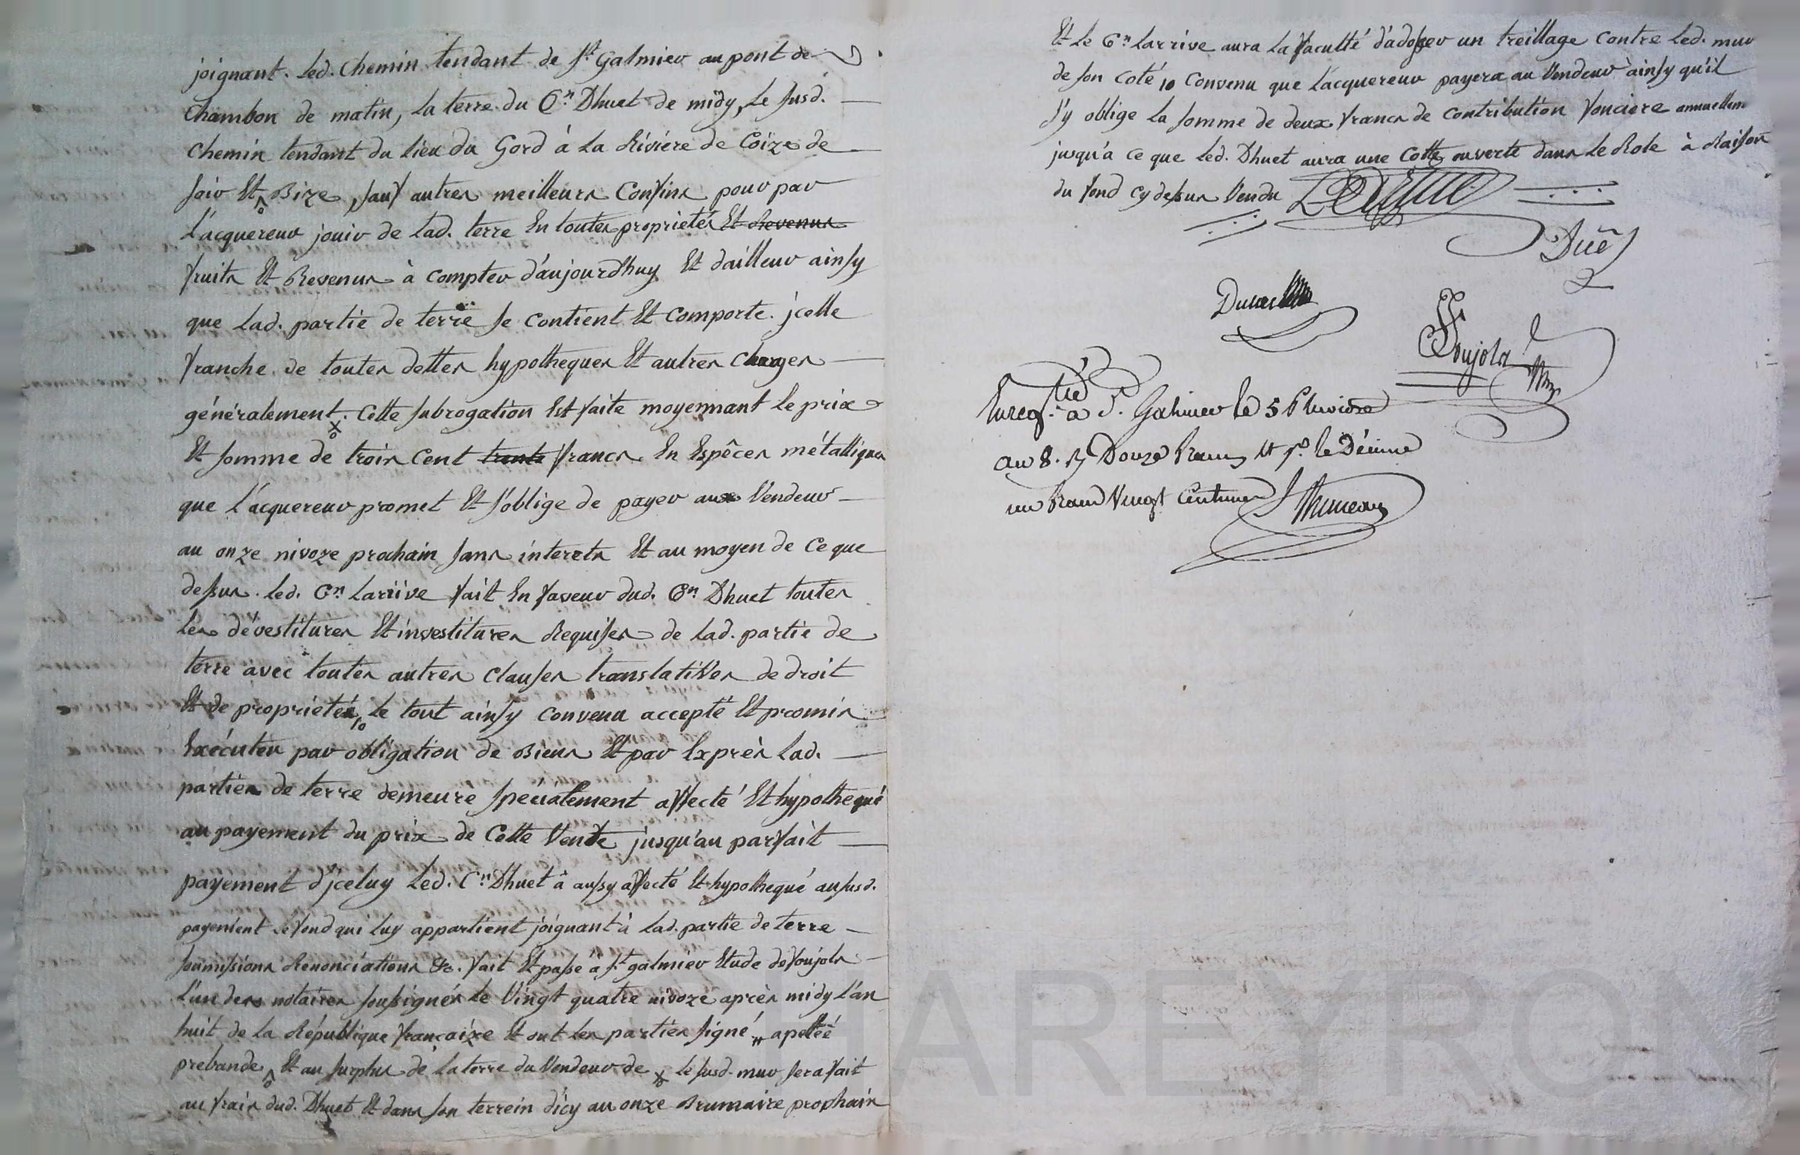 joignant. Led. Chemin tendant de St Galmier au pont de
chambon de matin, la terre du Cn Dhuet de midy, le susd.
chemin tendant du lieu du Gord à la Riviére de Coize de
soir Et Bize, sauf autres meilleurs Confins pour par
l'acquereur jouir de lad. terre En toutes propriétés Et Revenus
fruits Et Revenus à compter d'aujourdhuy Et d'ailleur ainsy
que lad. partie de terre se contient Et comporte. jcelle
franche de toutes dettes hypotheques Et autres charges
généralement. Cette subrogation Est faite moyennant le prix
Et somme de trois cent trente francs En Espêces métalliques
que l'acquereur promet Et s'oblige de payer au Vendeur
au onze nivoze prochain sans interets Et au moyen de ce que
dessus. Led. Cn Larrive fait En faveur dud. Cn Dhuet toutes
les dévestitures Et investitures Requises de lad. partie de
terre avec toutes autres clauses translatives de droit
Et de propriétés, le tout ainsy convenu accepté Et promis
Exécuter par obligation de Biens Et par Exprès lad.
partie de terre demeure spécialement affecté Et hypothequé
au payement du prix de Cette Vente jusqu'au parfait
payement d'jceluy Led. Cn Dhuet â aussy affecté Et hypothequé au susd.
payement le fond qui luy appartient joignant à lad. partie de terre
soumissions Renonciations &c. fait Et passé à St galmier Etude de Soujols
l'un des notaires soussignés le Vingt quatre nivoze après midy l'an
huit de la République françaize Et ont les parties signé, " apellée
prebande Et au surplus de la terre du Vendeur de le susd. mur sera fait
au frais dud. Dhuet Et dans son terrein d'icy au onze Brumaire prochain
Et Le Cn Larrive aura la faculté d'adosser un treillage contre led. mur
de son coté 10 convenu que l'acquereur payera au Vendeur ainsy qu'il
s'y oblige la somme de deux francs de contribution fonciere annuellem
jusqu'a ce que led. Dhuet aura une Cotte ouverte dans le Role à Raison
du fond cy dessus Vendu
Soujols
Enregtré à St. Galmier le 5 Pluviôse
an 8. Douze francs Et pr. le Décime
un franc Vingt Centimes
HAREYRON